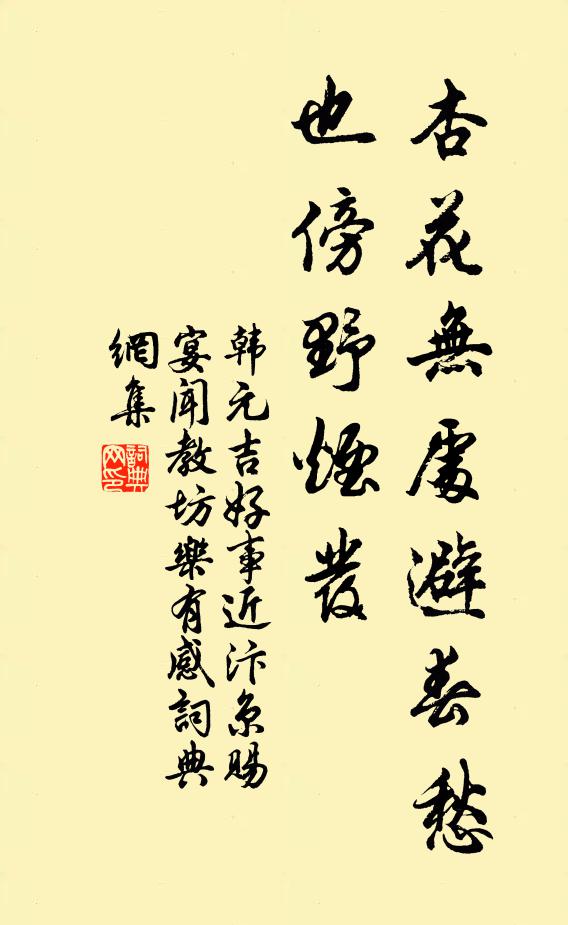 杏花無處避春愁
也傍野煙發
韩元吉好事近汴京賜
宴闻教坊樂有感詞典
網集
詞典
网印